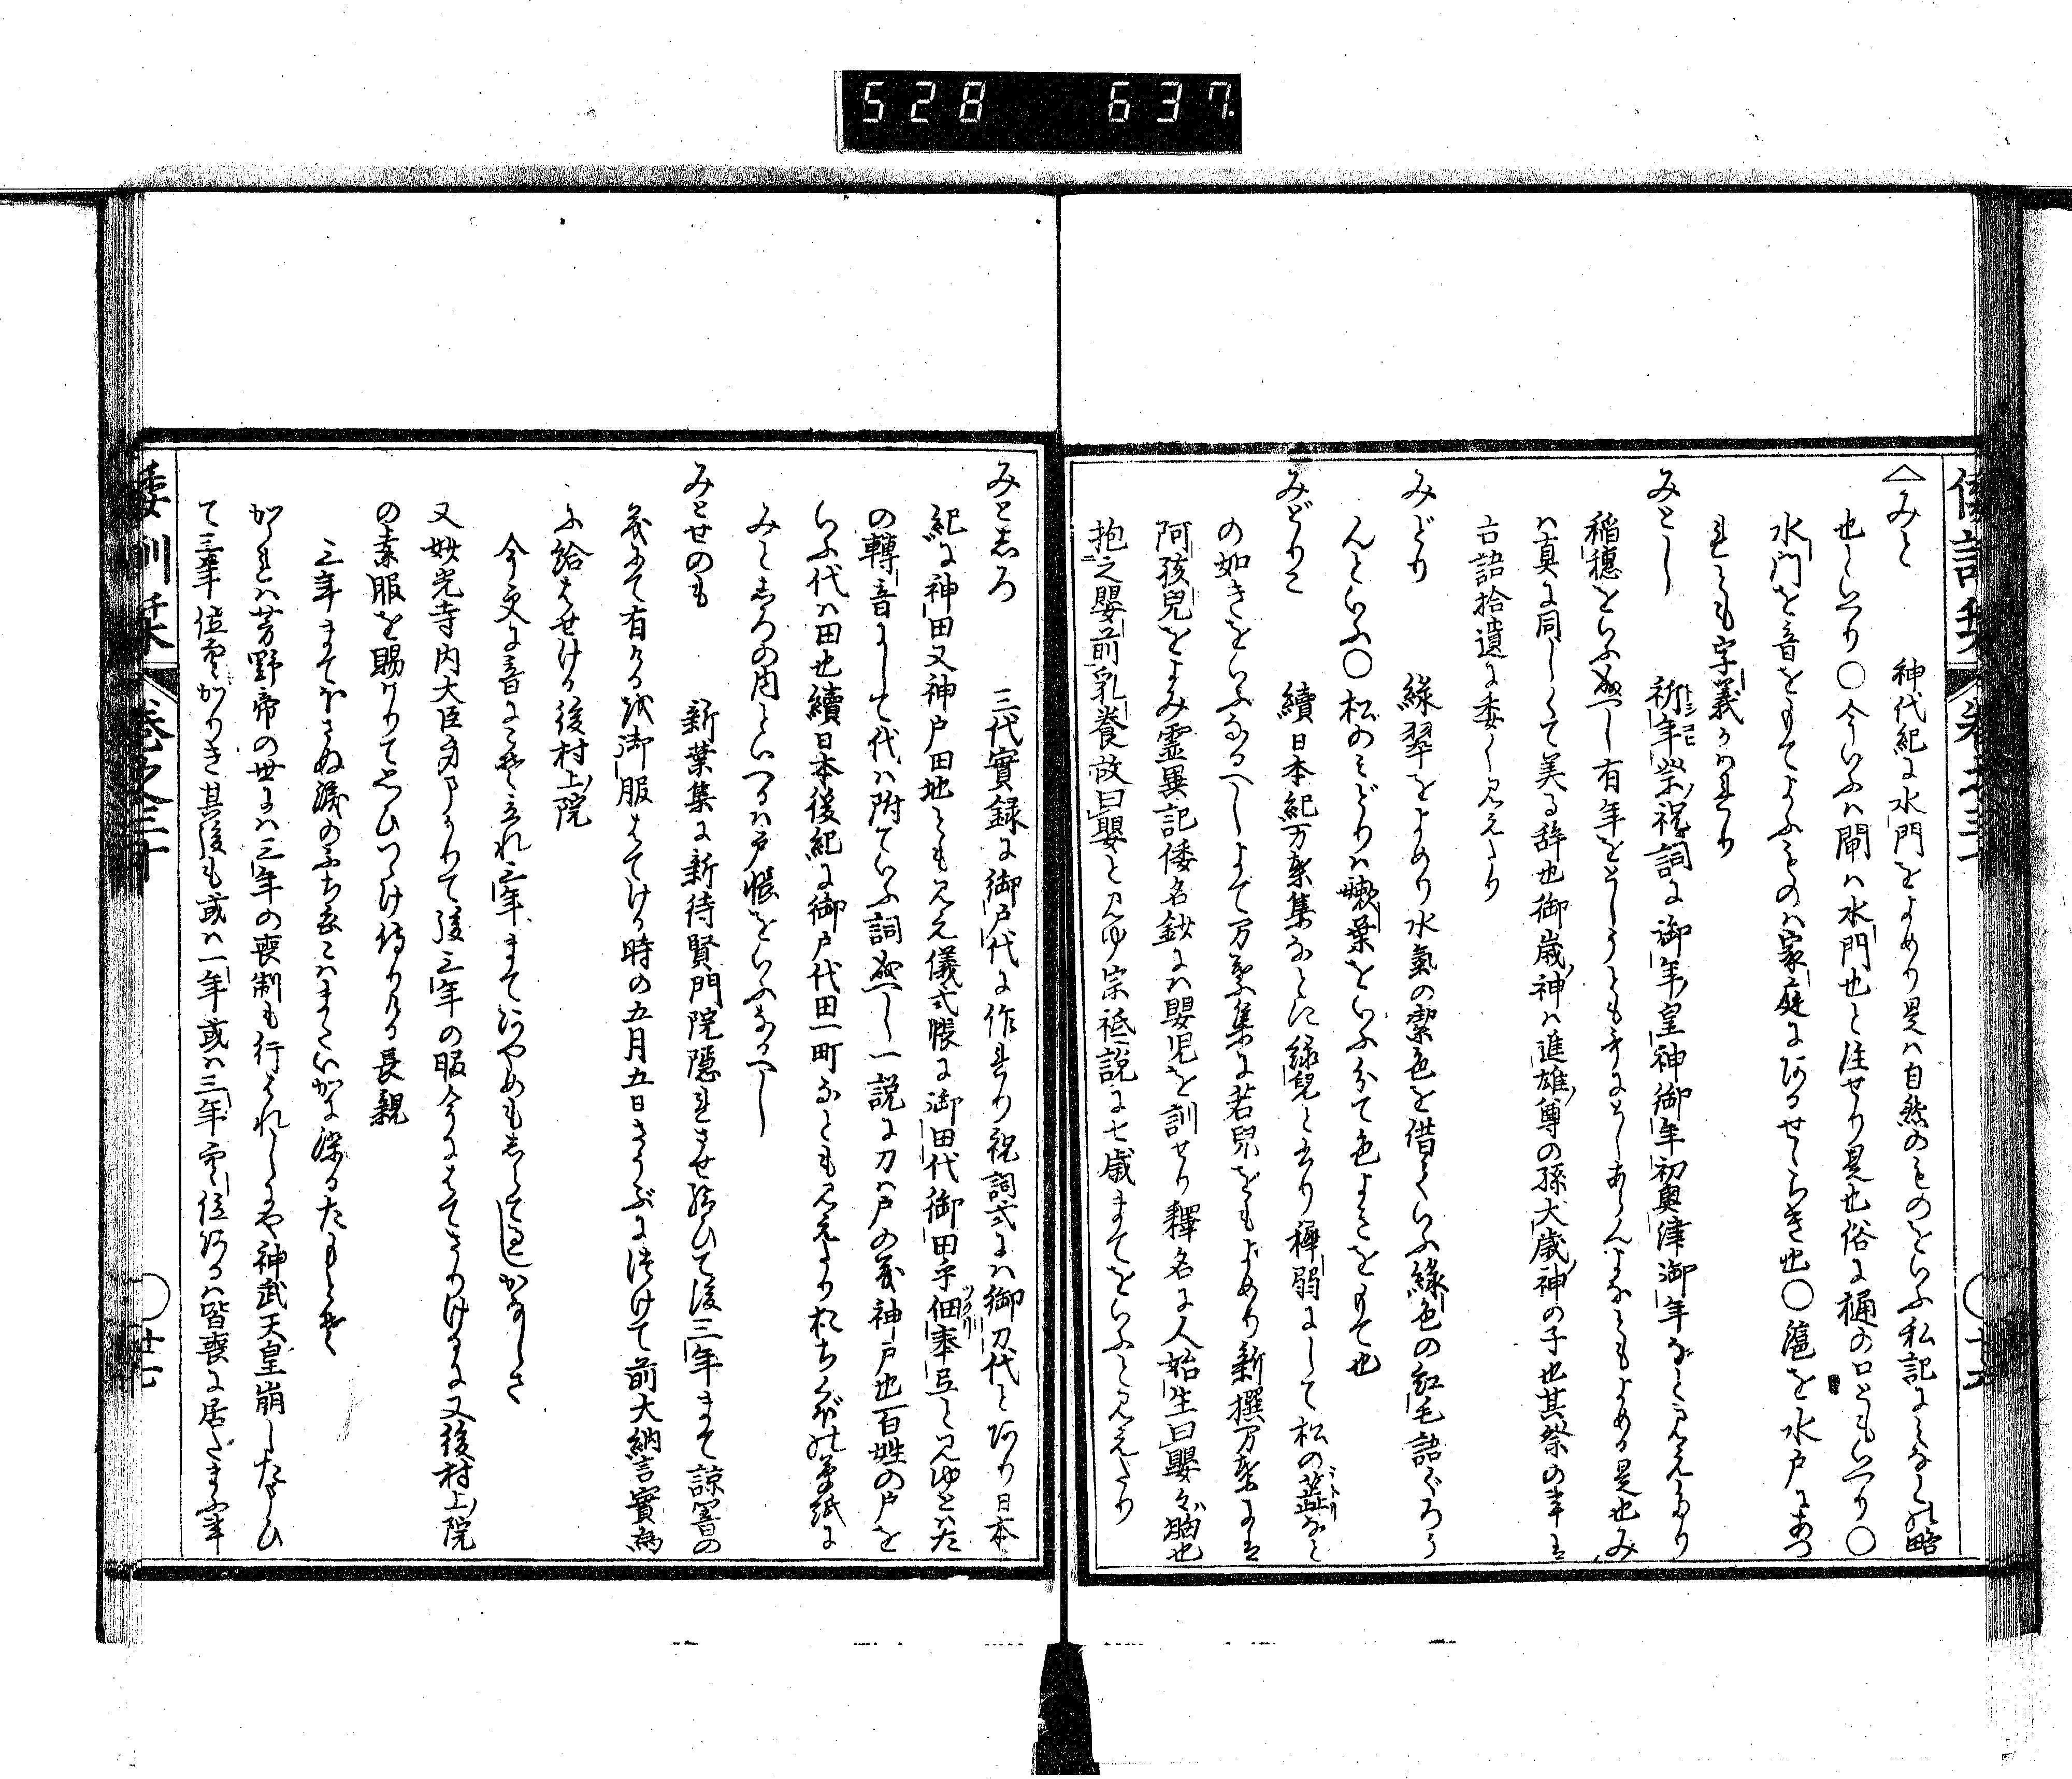 528 637
倭訓栞 巻之三十
△みと 神代紀に水門をよめり是は自然のものをいふ私記にみなとの略
也といへり○今いふは閘は水門也と注せり是也俗に樋の口ともいへり○
水門を音をもてよふものは家庭にあるせゝらき也○滬を水戸にあつ
れとも字義かはれり
みとし 祈年祭祝詞に御年皇神御年初奥津御年なと見えたり
稲穂をいふ成へし有年をとしうとも年にとしあらんなともよめる是也み
は真に同しくて美る辞也御歳神は進雄尊の孫大歳神の子也其祭の事は
古語拾遺に委しく見えたり
みどり 緑翠をよめり水氣の潔色を借ていふ緑色の紅毛語ぐろう
んといふ○松のみどりは嫩葉をいふ分て色よきをもて也
みどりこ 續日本紀万葉集なとに緑兒と書り稚弱にして松の蕋なと
の如きをいふなるへしよて万葉集に若兒をもよめり新撰万葉には
阿孩兒をよみ霊異記倭名鈔には嬰児を訓せり釋名に人始生曰嬰々胸也
抱之嬰前乳養故曰嬰と見ゆ宗祇説に七歳まてをいふと見えたり
みとしろ 三代實録に御戸代に作れり祝詞式には御刀代とあり日本
紀に神田又神戸田地とも見え儀式帳に御田代御田乎佃奉弖と見ゆとはた
の轉音にして代は附ていふ詞成へし一説に刀は戸の義神戸也百姓の戸を
いふ代は田也續日本後紀に御戸代田一町なとも見えたりおちくぼの草紙に
みとしろの内といへるは戸帳をいふなるへし
みとせのも 新葉集に新待賢門院隠れさせ給ひて後三年まて諒闇の
義にて有ける或御服はてける時の五月五日さうぶに付けて前大納言實為
に給はせける後村上院
今更に音にこそ立れ三年まてあやめもしらて過しかなしさ
又妙光寺内大臣身まかりて後三年の服今はてさりけるに又後村上院
の素服を賜けりて思ひつゝけ侍りける長親
三年まてほさぬ涙のふち衣こはまたいかに染るたもとそ
かゝれは芳野帝の世には三年の喪制も行はれしにや神武天皇崩したまひ
て三年位空かりき其後も或は一年或は三年空位あるは皆喪に居たまふ事
倭訓栞 巻之三十 ○廿七